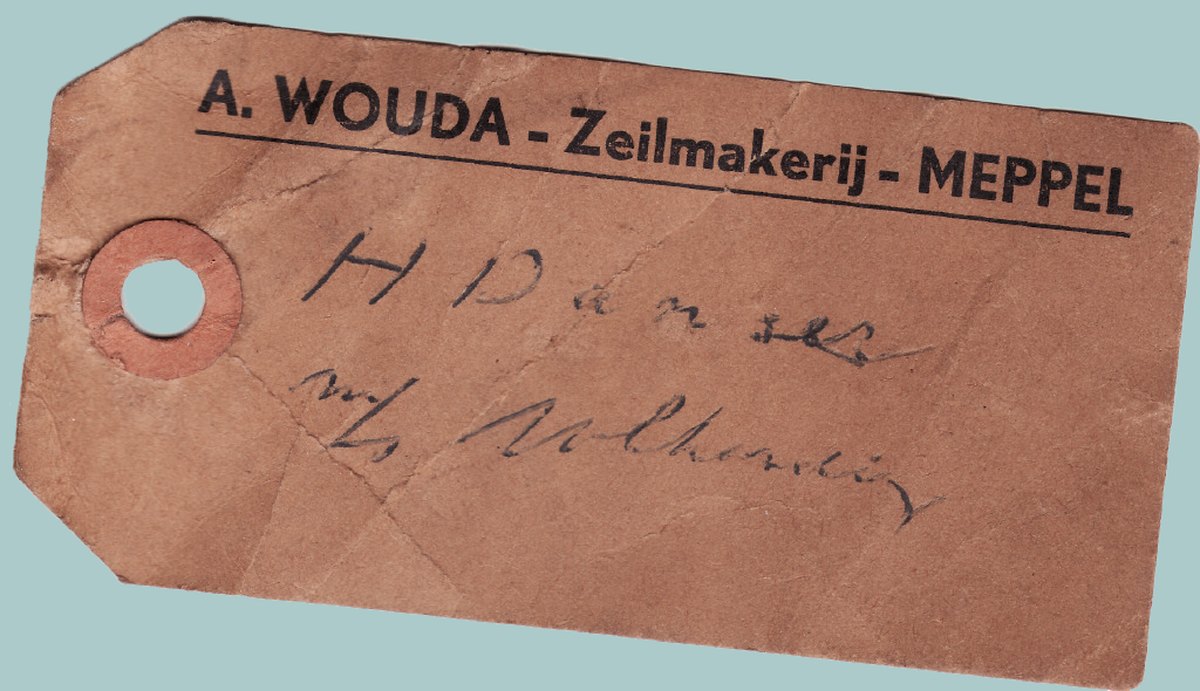 A. WOUDA - Zeilmakerij - MEPPEL
H Danser
m/s Volharding